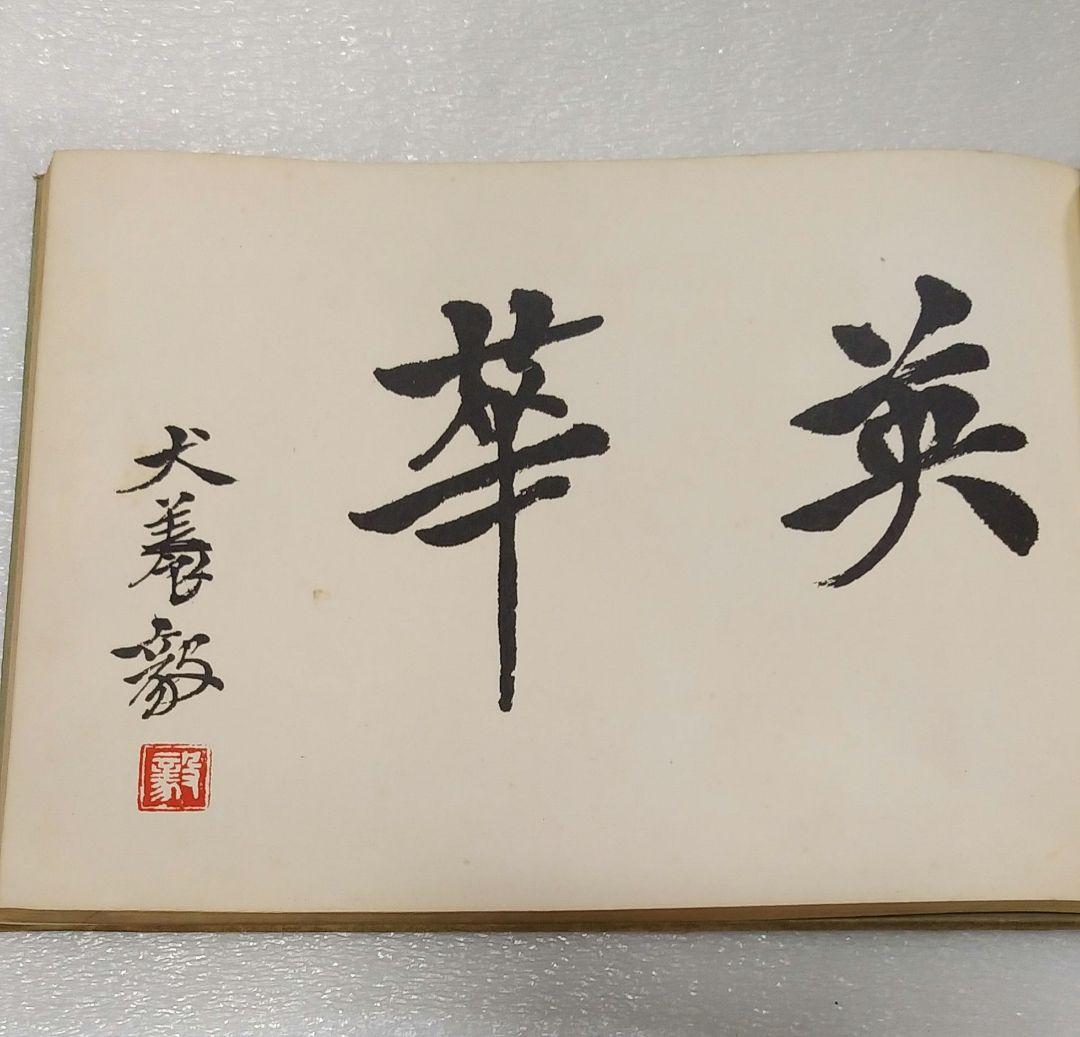 英華
犬養毅
毅